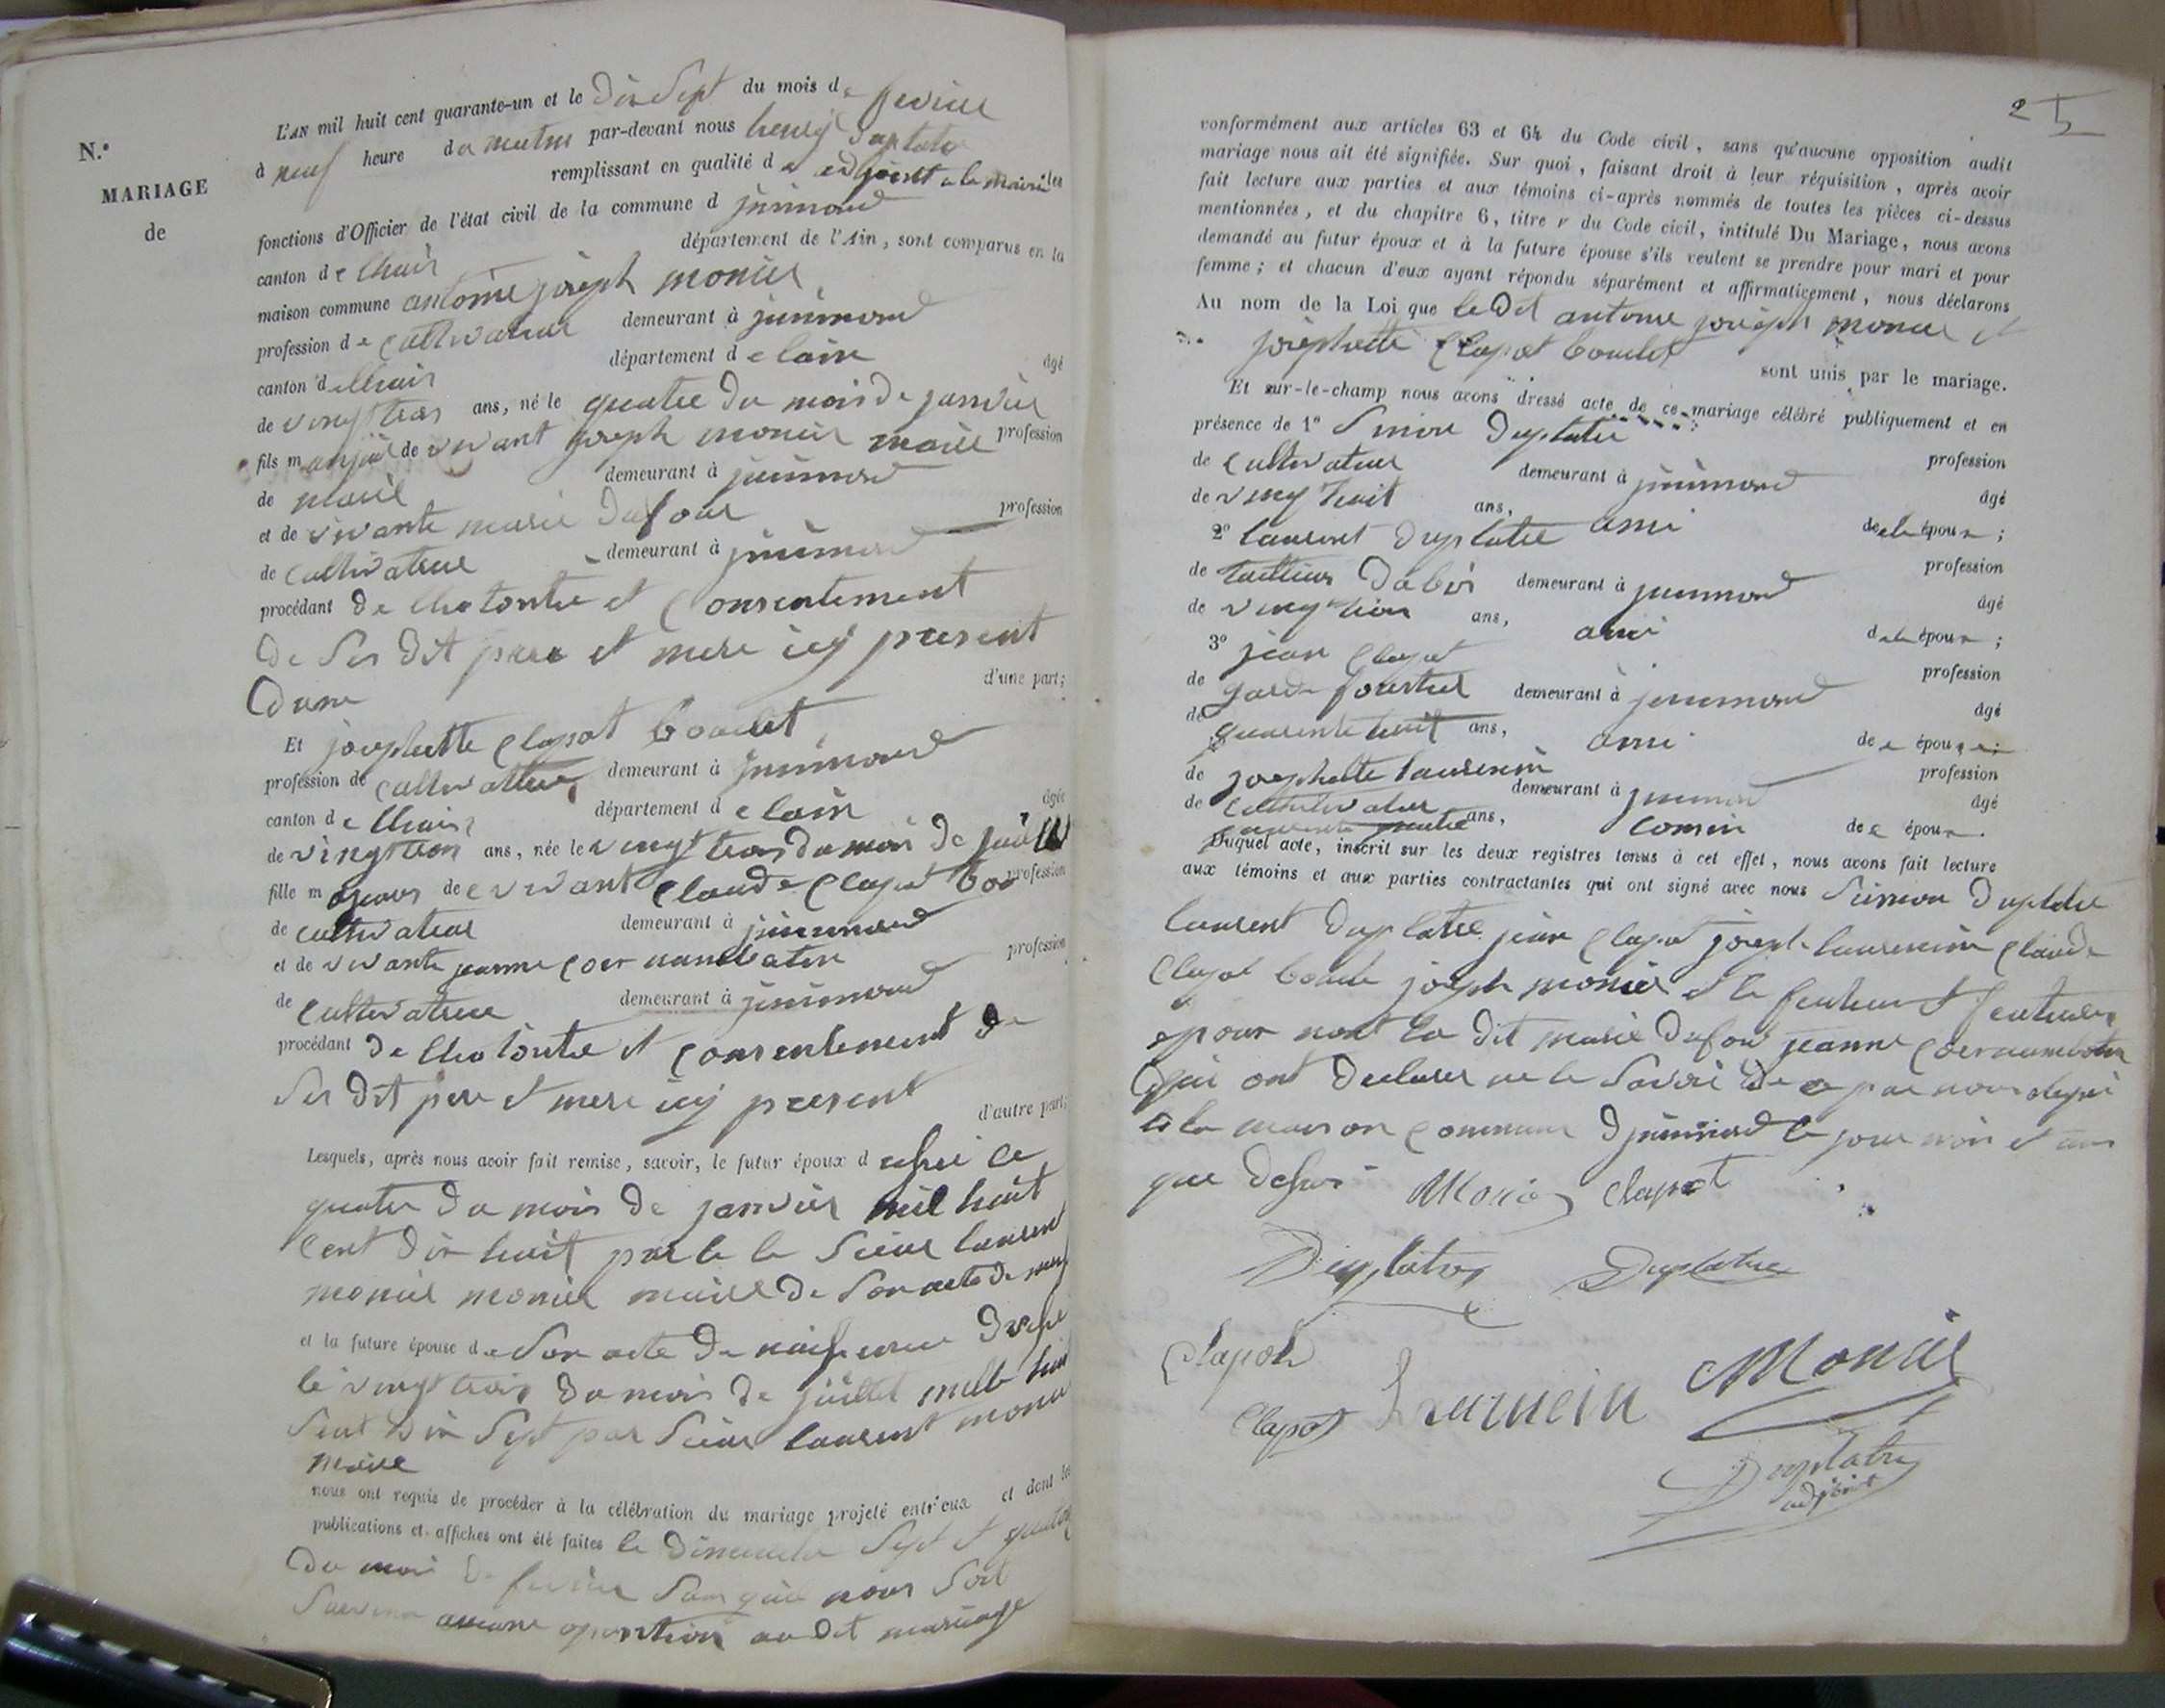 L'AN mil huit cent quarante-un et le Dix Sept du mois de fevrier
N.º
à neuf heure du matin par-devant nous henrÿ Duplatre
remplissant en qualité d adjoint a la mairie les
MARIAGE
de
fonctions d'Officier de l'état civil de la commune d jnimond
canton de lhuis département de l'Ain, sont comparus en la
maison commune antoine joseph monier
profession de cultivateur demeurant à jnimond
canton d lhuis département de lain âgé
de vingt trois ans, né le quatre du mois de janvier
fils m de vivant joseph monier maire profession
de maire demeurant à jnimond
et de vivante marie Dufour profession
de cultivatrice demeurant à jnimond
procédant de lhotoritée et consentement
De Ses Dit pere et mere icy present
Dune d'une part;
Et josephette Clapot boulet
profession de cultivatrice demeurant à jnimond
canton de lhuis département de lain âgée
de vingt trois ans, née le vingt trois du mois de juillet
fille m de vivant Claude Clapot bou profession
de cultivateur demeurant à jnimond
et de vivante jeanne profession
de cultivatrice demeurant à jnimond
procédant De lhotoritée et consentement de
Ses Dit pere et mere icy present d'autre part;
Lesquels, après nous avoir fait remise, savoir, le futur époux d ce
quatre du mois de janvier mil huit
Cent Dix huit par le Sieur laurent
monier monier maire De Son acte de
et la future épouse de Son acte De naissence
le vingt trois Du mois de juillet mille huit
Sent Dix Sept par Sieur laurent monier
maire
nous ont requis de procéder à la célébration du mariage projeté entr'eux et dont les
publications et affiches ont été faites le Dimenche Sept et quatorze
Du mois De fevrier San quil nous Soit
Survenu aucune oposition au dit mariage
25
conformément aux articles 63 et 64 du Code civil, sans qu'aucune opposition audit
mariage nous ait été signifiée. Sur quoi, faisant droit à leur réquisition, après avoir
fait lecture aux parties et aux témoins ci-après nommés de toutes les pièces ci-dessus
mentionnées, et du chapitre 6, titre v du Code civil, intitulé Du Mariage, nous avons
demandé au futur époux et à la future épouse s'ils veulent se prendre pour mari et pour
femme; et chacun d'eux ayant répondu séparément et affirmativement, nous déclarons
Au nom de la Loi que le Dit antoine joseph monier et
josephette Clapot boulet sont unis par le mariage.
Et sur-le-champ nous avons dressé acte de ce mariage célébré publiquement et en
présence de 1º Simon Duplatre profession
de cultivateur demeurant à jnimond âgé
de vingt huit ans, ami de la épouse;
2º laurent Duplatre profession
de tailleur Dabis demeurant à jnimond âgé
de vingt trois ans, ami de la épouse;
3º jean Clapot profession
de garde forestier demeurant à jnimond âgé
de quarente huit ans, ami de e épouse;
de josephette laurencin profession
de cultivateur demeurant à jnimond âgé
quarente quatre ans, cousin de e épou.
Duquel acte, inscrit sur les deux registres tenus à cet effet, nous avons fait lecture
aux témoins et aux parties contractantes qui ont signé avec nous Simon Duplatre
laurent Duplatre jean Clapot joseph laurencin Claude
Clapot boulet joseph monier et le futeur et
epour non la Dit marie Dufour jeanne
qui ont Declarer ne le Savoir De par nous
a la maison commune D jnimond le jour mois et an
que Desus Monier Clapot
Duplatre Duplatre
Clapot
Clapot Laurencin Monier
Duplatre
adjoint